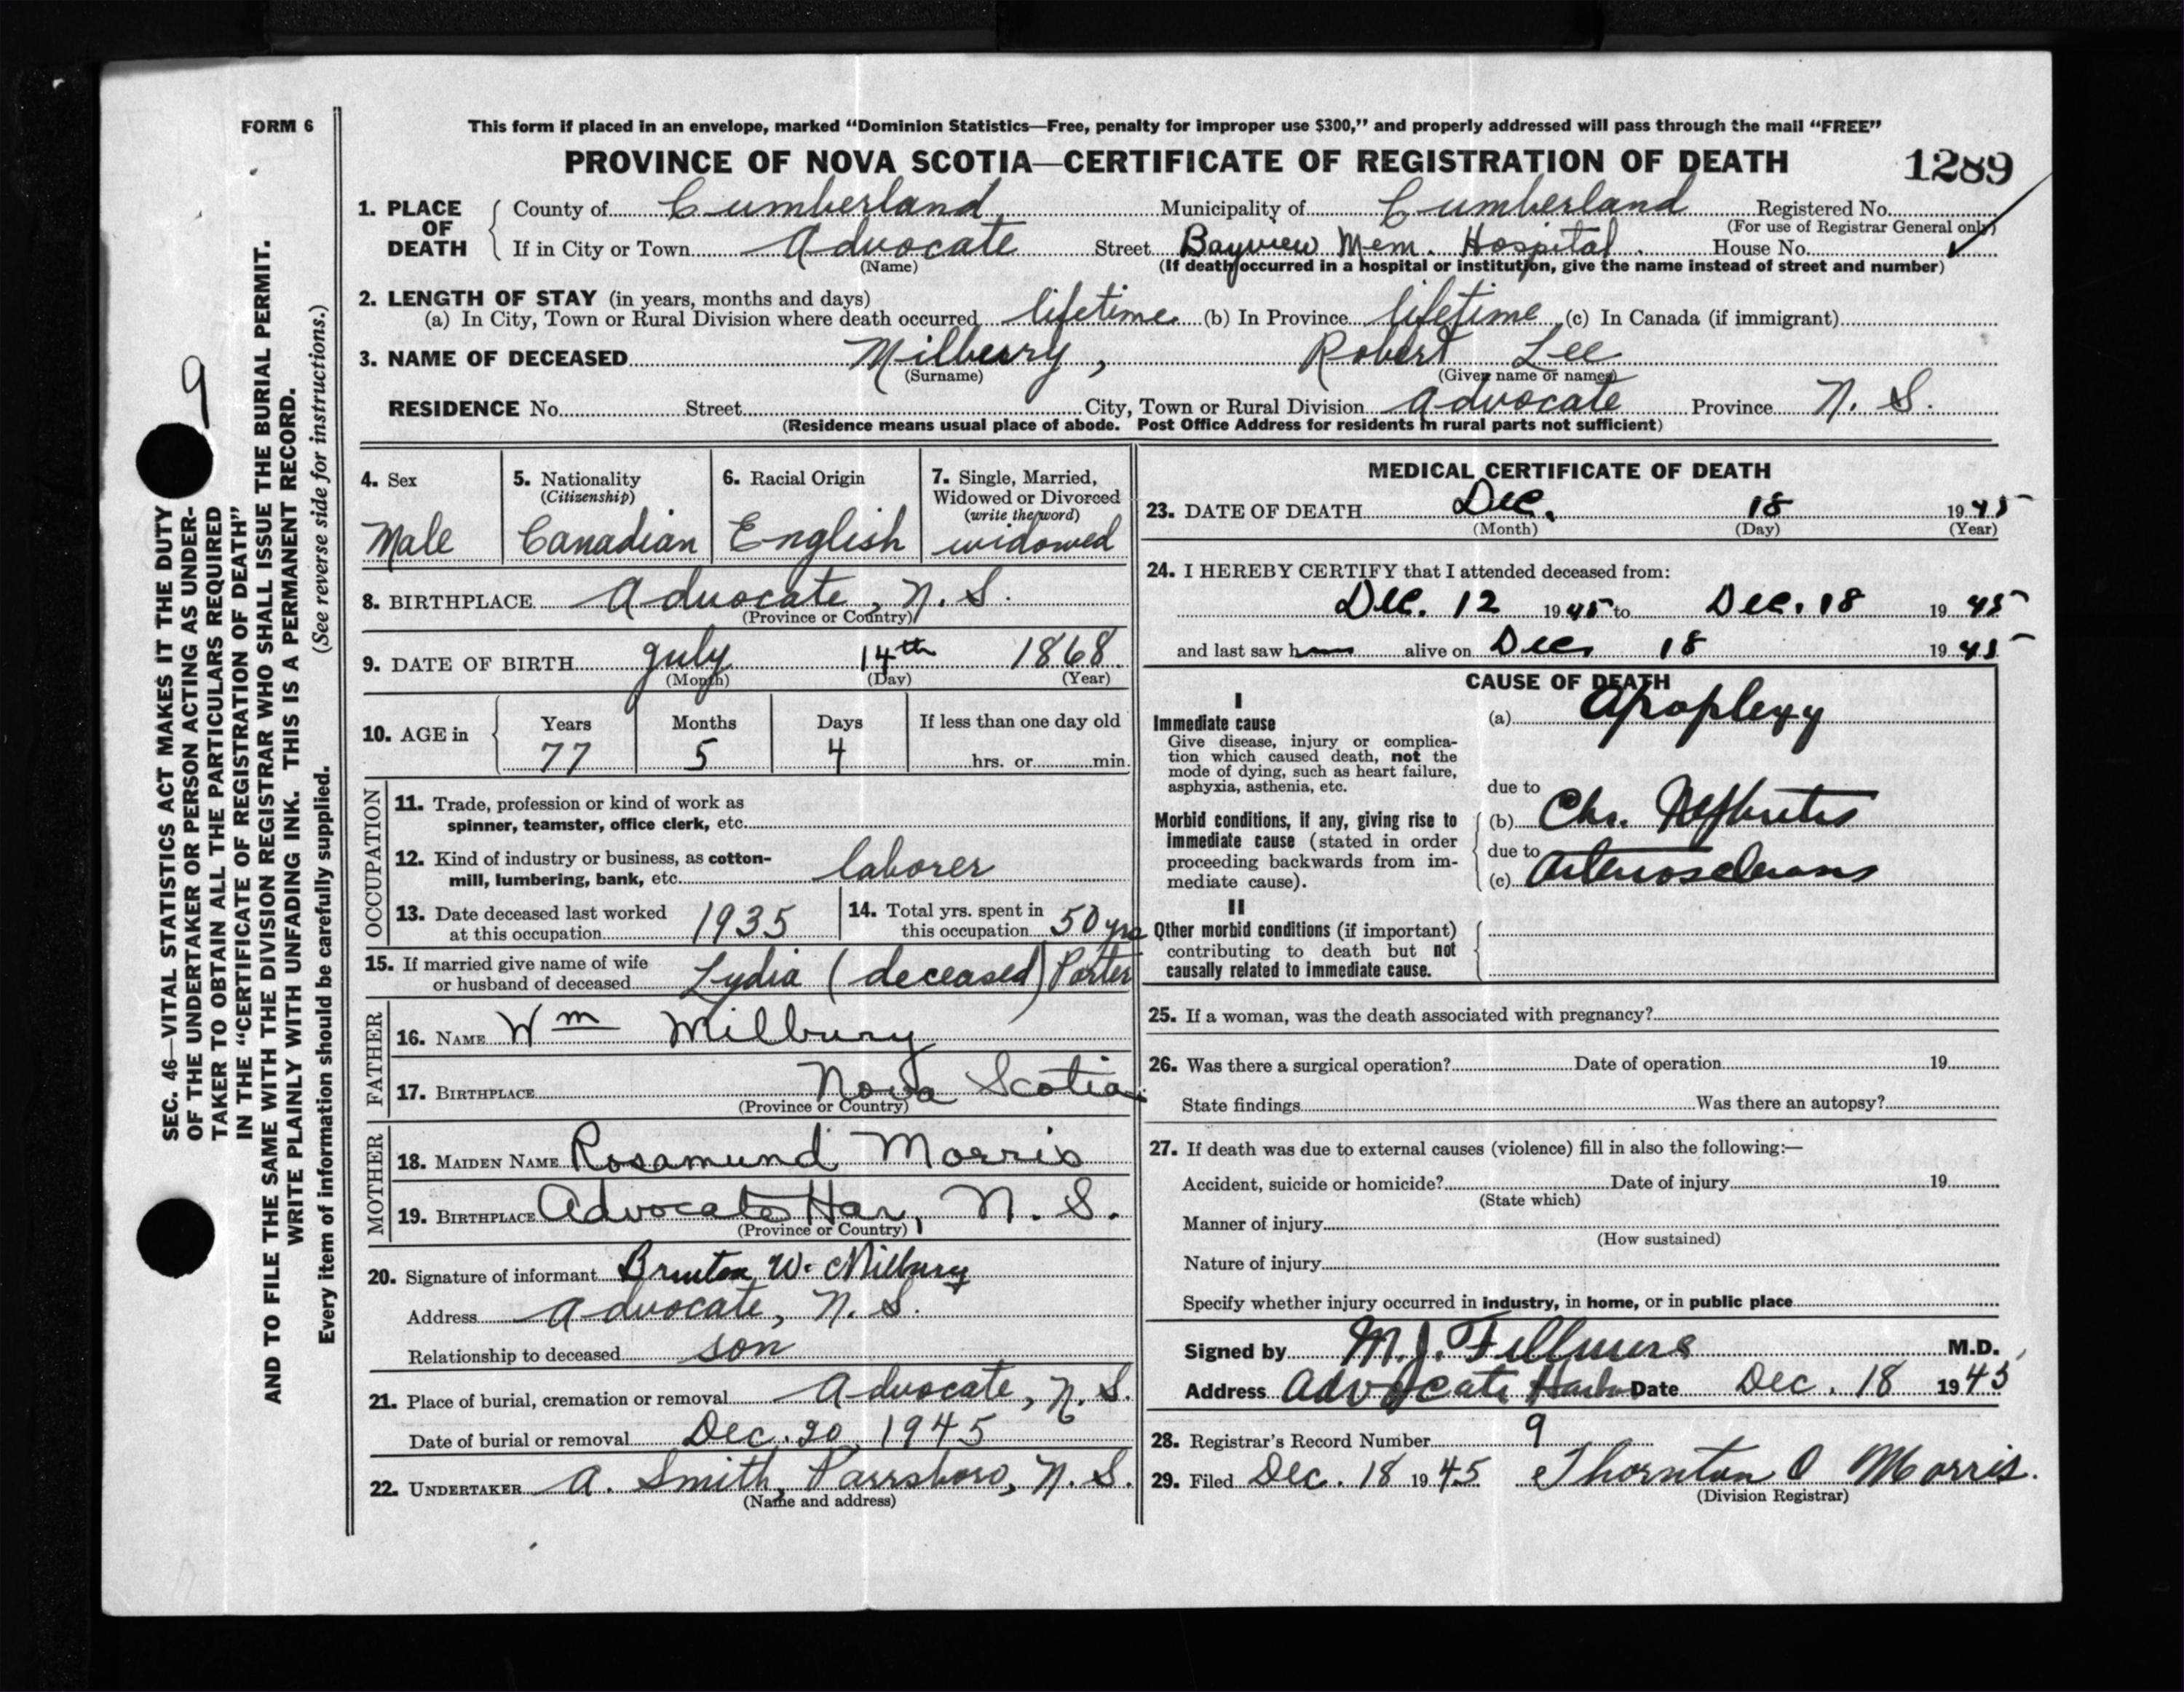 FORM 6
This form if placed in an envelope, marked “Dominion Statistics—Free, penalty for improper use $300,” and properly addressed will pass through the mail “FREE”
PROVINCE OF NOVA SCOTIA—CERTIFICATE OF REGISTRATION OF DEATH
1289
1. PLACE OF DEATH
County of Cumberland Municipality of Cumberland Registered No.
(For use of Registrar General only)
If in City or Town Advocate Street Bayview Mem. Hospital. House No.
(Name) (If death occurred in a hospital or institution, give the name instead of street and number)
2. LENGTH OF STAY (in years, months and days)
(a) In City, Town or Rural Division where death occurred lifetime (b) In Province lifetime (c) In Canada (if immigrant)
3. NAME OF DECEASED Milberry, Robert Lee
(Surname) (Given name or names)
RESIDENCE No. Street City, Town or Rural Division Advocate Province N. S.
(Residence means usual place of abode. Post Office Address for residents in rural parts not sufficient)
4. Sex
Male
5. Nationality
(Citizenship)
Canadian
6. Racial Origin
English
7. Single, Married,
Widowed or Divorced
(write the word)
widowed
8. BIRTHPLACE Advocate, N. S.
(Province or Country)
9. DATE OF BIRTH July 14th 1868
(Month) (Day) (Year)
10. AGE in
Years Months Days If less than one day old
77 5 4 hrs. or min.
OCCUPATION
11. Trade, profession or kind of work as
spinner, teamster, office clerk, etc.
12. Kind of industry or business, as cotton-
mill, lumbering, bank, etc. laborer
13. Date deceased last worked
at this occupation 1935
14. Total yrs. spent in
this occupation 50 yrs
15. If married give name of wife
or husband of deceased Lydia (deceased) Porter
FATHER
16. NAME Wm Milbury
17. BIRTHPLACE Nova Scotia
(Province or Country)
MOTHER
18. MAIDEN NAME Rosamund Morris
19. BIRTHPLACE Advocate Har, N. S.
(Province or Country)
20. Signature of informant Brunton W. Milbury
Address Advocate, N. S.
Relationship to deceased son
21. Place of burial, cremation or removal Advocate, N. S.
Date of burial or removal Dec. 20, 1945
22. UNDERTAKER A. Smith, Parrsboro, N. S.
(Name and address)
MEDICAL CERTIFICATE OF DEATH
23. DATE OF DEATH Dec. 18 1945
(Month) (Day) (Year)
24. I HEREBY CERTIFY that I attended deceased from:
Dec. 12 1945 to Dec. 18 1945
and last saw him alive on Dec 18 1945
CAUSE OF DEATH
I
Immediate cause
Give disease, injury or complica-
tion which caused death, not the
mode of dying, such as heart failure,
asphyxia, asthenia, etc.
(a) Apoplexy
due to
Morbid conditions, if any, giving rise to
immediate cause (stated in order
proceeding backwards from im-
mediate cause).
(b) Chr. Nephritis
due to
(c) Arteriosclerosis
II
Other morbid conditions (if important)
contributing to death but not
causally related to immediate cause.
25. If a woman, was the death associated with pregnancy?
26. Was there a surgical operation? Date of operation 19
State findings Was there an autopsy?
27. If death was due to external causes (violence) fill in also the following:—
Accident, suicide or homicide? Date of injury 19
(State which)
Manner of injury
(How sustained)
Nature of injury
Specify whether injury occurred in industry, in home, or in public place
Signed by M. J. Fillmore M.D.
Address Advocate Harbor Date Dec. 18 1945
28. Registrar's Record Number 9
29. Filed Dec. 18 1945 Thornton O Morris.
(Division Registrar)
9
SEC. 46—VITAL STATISTICS ACT MAKES IT THE DUTY
OF THE UNDERTAKER OR PERSON ACTING AS UNDER-
TAKER TO OBTAIN ALL THE PARTICULARS REQUIRED
IN THE “CERTIFICATE OF REGISTRATION OF DEATH”
AND TO FILE THE SAME WITH THE DIVISION REGISTRAR WHO SHALL ISSUE THE BURIAL PERMIT.
WRITE PLAINLY WITH UNFADING INK. THIS IS A PERMANENT RECORD.
Every item of information should be carefully supplied. (See reverse side for instructions.)